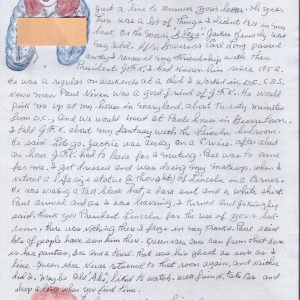 Just a line to answer your letter. Oh yes,
there was a lot of things I didn't tell in my
book. On the Movie 3 Lives; Jackie Kennedy was
my idol. After Governors Earle Long passed
away I renewed my friendship with then
President J.F.K. I had known him since 1954.
He was a regular on weekends at a club I worked in D.C. C.B.S.
News man Paul Niven was a good friend of J.F.K. He would
pick me up at my house in Maryland, about twenty minutes
from D.C., and we would meet at Pauls house in Georgetown.
I told J.F.K. about my fantasy with the Lincoln bedroom.
He said Lets go. Jackie was away on a Cruise. After about
an hour J.F.K. had to leave for a meeting. Paul was to come
for me. I got dressed and was doing my makeup, when I
noticed a life size statue I thought of Lincoln, in a corner.
He was wearing a tall black hat, a dark suit and a white shirt.
Paul arrived and as I was leaving, I turned and jokingly
said thank you President Lincoln for the use of your bed-
room. There was nothing there I froze in my tracks. Paul said
lots of people have seen him there. Queen one ran from that room
in her panties, bra and a towel. That was his ghost as sure as I
live. Queen never returned to that room again, and neither
did I. Maybe old Abe, liked to watch, well friend, take care and
drop a line when you find time.